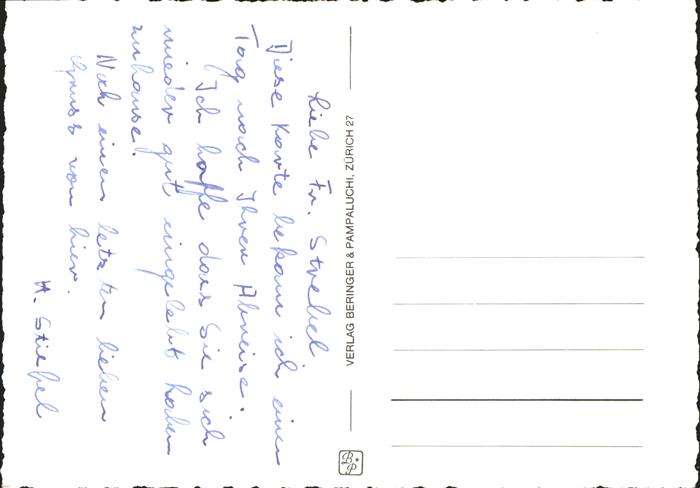 Liebe Fr. Strebel
Diese Karte bekam ich einen
Tag nach Ihrer Abreise.
Ich hoffe dass Sie sich
wieder gut eingelebt haben
zuhause.
Noch einen letzten lieben
Gruss von hier.
H. Stiefel
VERLAG BERINGER & PAMPALUCHI, ZÜRICH 27
B.P